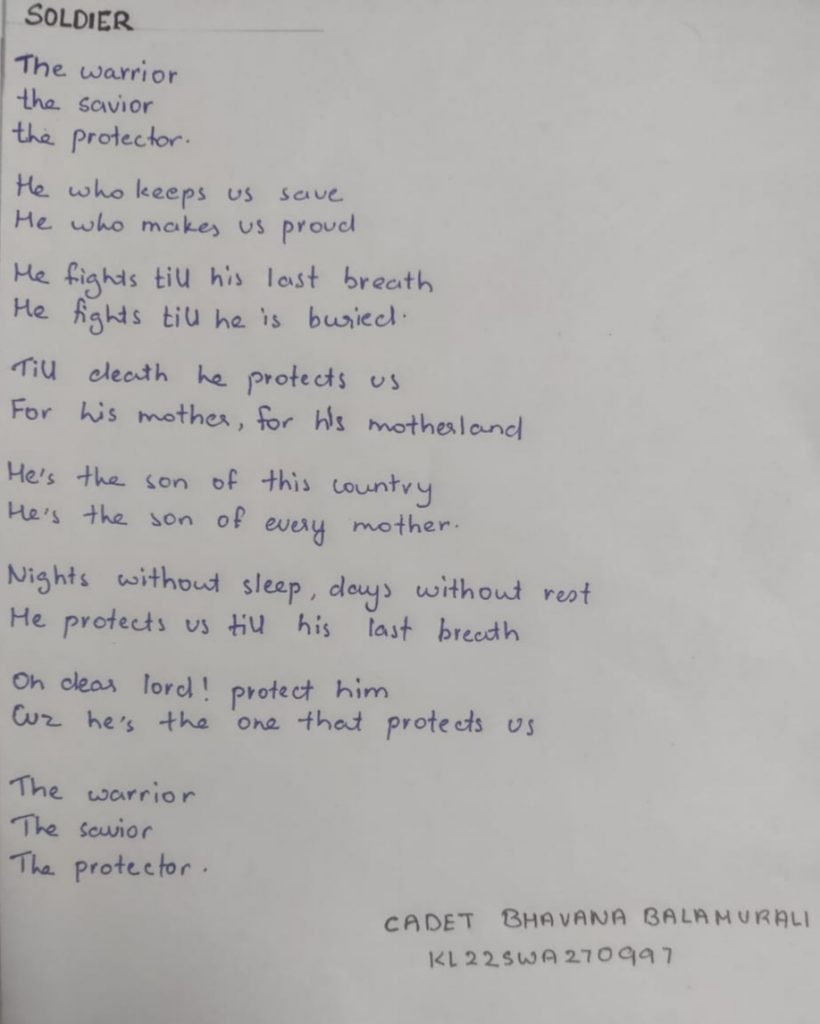 SOLDIER
The warrior
the savior
the protector.
He who keeps us save
He who makes us proud
He fights till his last breath
He fights till he is buried.
Till death he protects us
For his mother, for his motherland
He's the son of this country
He's the son of every mother.
Nights without sleep, days without rest
He protects us till his last breath
Oh dear lord! protect him
Cuz he's the one that protects us
The warrior
The savior
The protector.
CADET BHAVANA BALAMURALI
KL22SWA270997